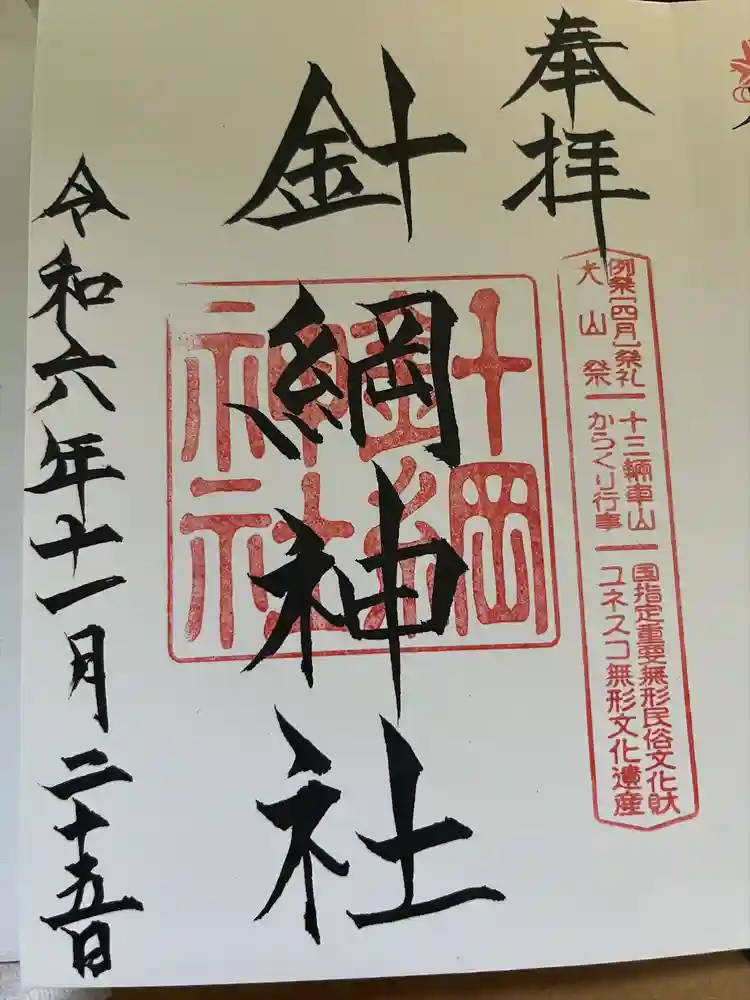 奉拝
例祭[四月]祭礼 十三輛車山 国指定重要無形民俗文化財
犬山祭 からくり行事 ユネスコ無形文化遺産
針綱神社
針綱
神社
令和六年十一月二十五日